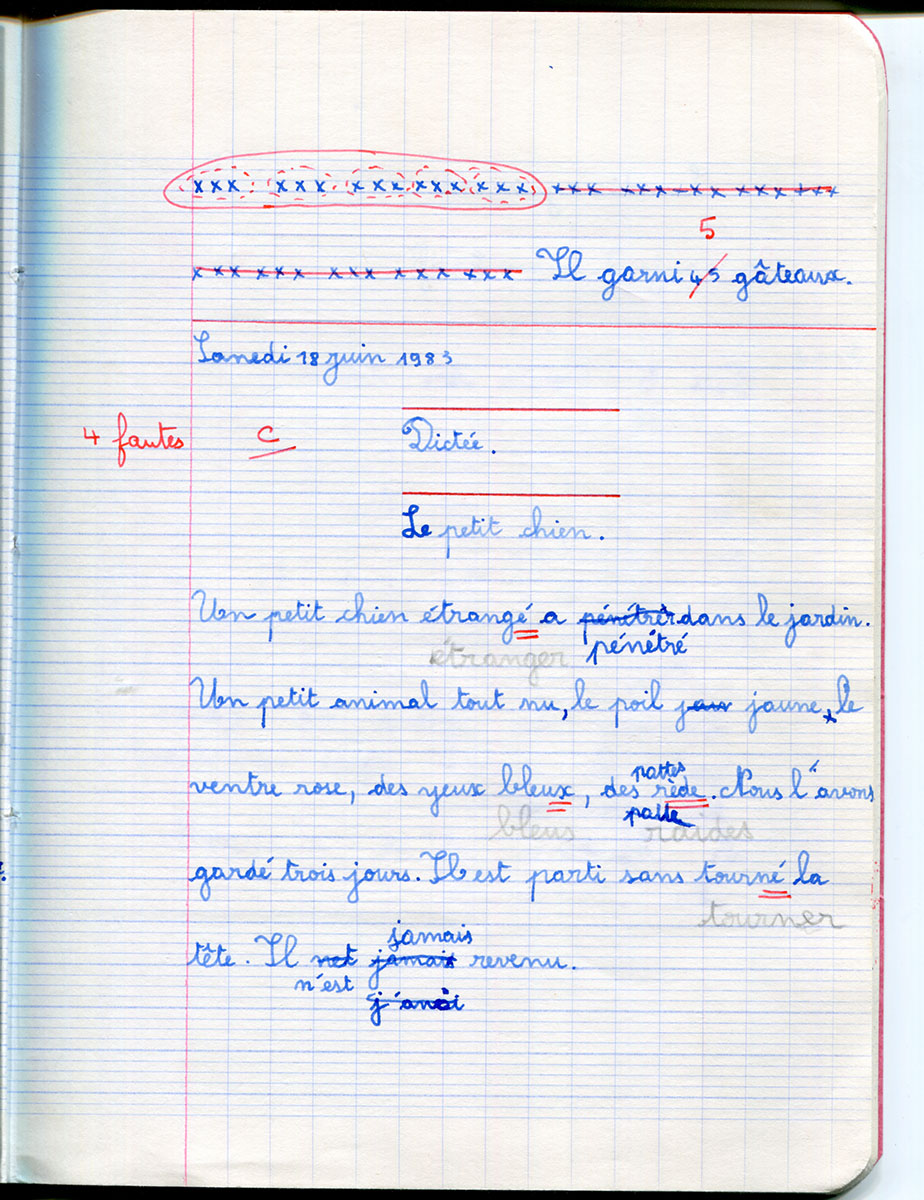 xxx xxx xxx xxx xxx xxx xxx xx xxx xxx
5
x xx xxx xxx xxx xxx Il garni 45 gâteaux.
Samedi 18 juin 1983
4 fautes C Dictée.
Le petit chien.
Un petit chien étrangé a pénétrèr dans le jardin.
étranger pénétré
Un petit animal tout nu, le poil jau jaune, le
pattes
ventre rose, des yeux bleux, des rède. Nous l'avons
bleus patte raides
gardé trois jours. Il est parti sans tourné la
tourner
jamais
tête. Il net jamais revenu.
n'est